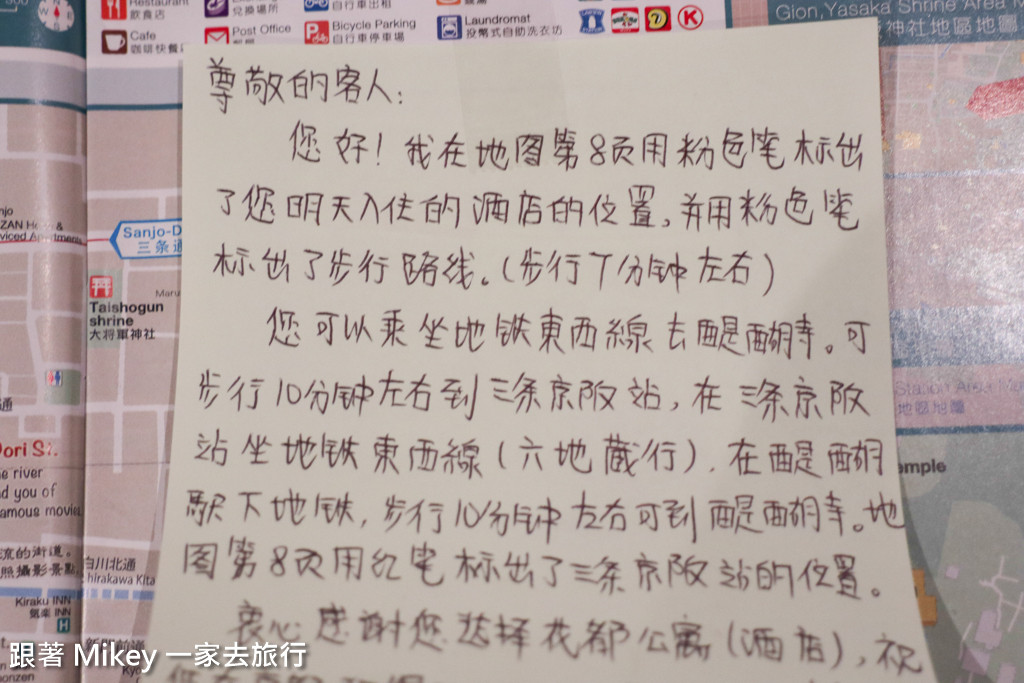 Restaurant
飲食店
兌換場所
自行車出租
Cafe
Post Office
Bicycle Parking
自行車停車場
Laundromat
投幣式自助洗衣坊
Gion, Yasaka Shrine Area
神社地區地圖
尊敬的客人:
您好!我在地图第8页用粉色笔标出
了您明天入住的酒店的位置,并用粉色笔
标出了步行路线。(步行7分钟左右)
您可以乘坐地铁東西線去醍醐寺。可
步行10分钟左右到三条京阪站,在三条京阪
站坐地铁東西線(六地蔵行).在醍醐
駅下地铁,步行10分钟左右可到醍醐寺。地
图第8页用红笔标出了三条京阪站的位置。
衷心感谢您选择花都公寓(酒店),祝
Sanjo-D
三条通
Taishogun
shrine
大将軍神社
Station Area
地區地圖
Dori St.
he river
nd you of
amous movie
流的街道。
照攝影景點
白川北通
hirakawa Kita
Kiraku INN
気楽 INN
H
emple
跟著 Mikey 一家去旅行